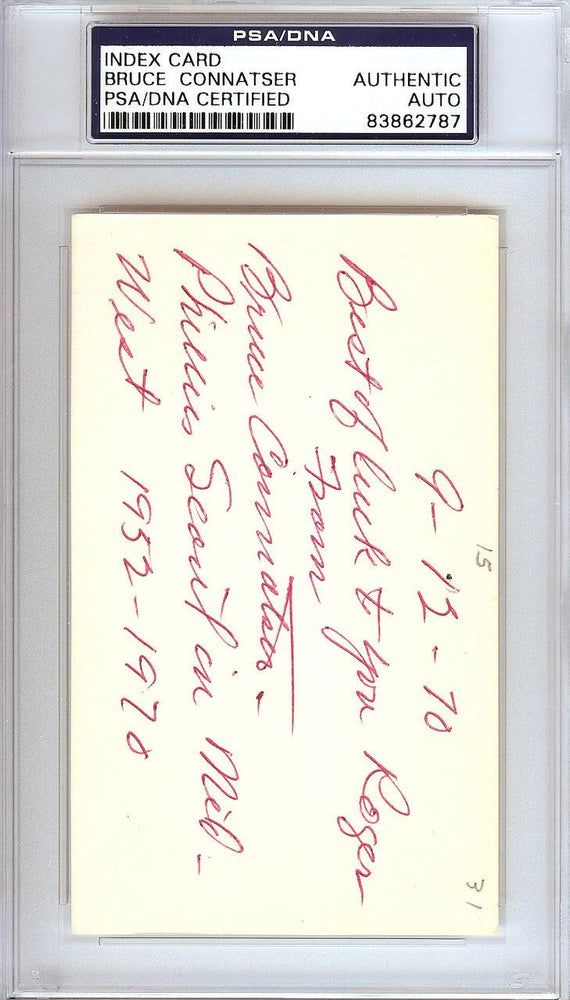 PSA/DNA
INDEX CARD
BRUCE CONNATSER AUTHENTIC
PSA/DNA CERTIFIED AUTO
83862787
15
9-13-70
Best of luck to you Roger
From
Bruce Connatser -
Phillies Scout in Mid-
West 1952-1970
31